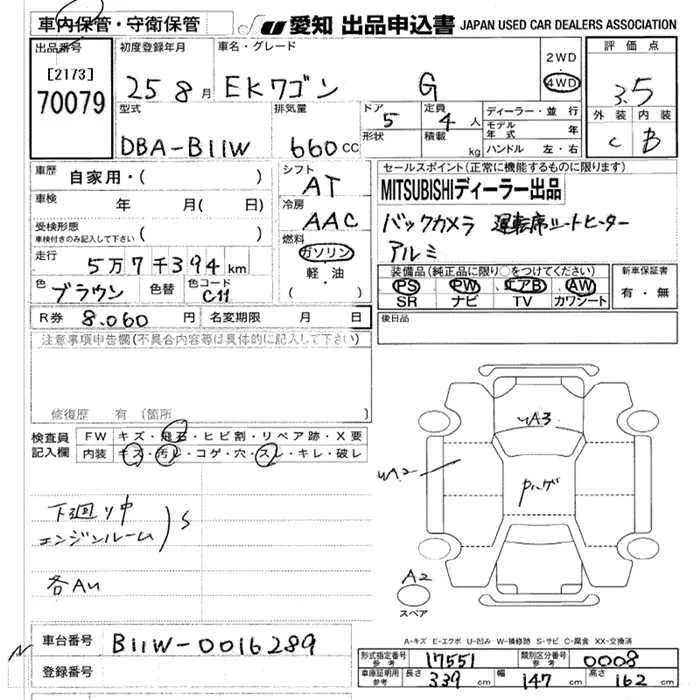 車内保管・守衛保管 JU 愛知 出品申込書 JAPAN USED CAR DEALERS ASSOCIATION
出品番号 初度登録年月 車名・グレード 2WD 評価点
[2173] 25 8月 EKワゴン G 4WD 3.5
70079 型式 排気量 ドア 定員 ディーラー・並行 外装 内装
5 4人 モデル年式 年
DBA-B11W 660cc 形状 積載 kg ハンドル 左・右 C B
車歴 自家用・( ) シフト AT セールスポイント(正常に機能するものに限ります)
車検 年 月(日) 冷房 AAC MITSUBISHIディーラー出品
受検形態 ( ) バックカメラ 運転席シートヒーター
車検付きのみ記入して下さい 燃料 アルミ
走行 5万7千394km ガソリン 装備品(純正品に限り○をつけてください) 新車保証書
色 ブラウン 色替 色コード C11 軽・油 PS PW エアB AW 有・無
( ) SR ナビ TV カワシート
R券 8.060円 名変更期限 月 日 後日品
注意事項申告欄(不具合内容等は具体的に記入して下さい)
修復歴 有 (箇所 )
検査員 FW キズ・飛石・ヒビ割・リペア跡・X要
記入欄 内装 キズ・汚レ・コゲ・穴・スレ・キレ・破レ
UA3
UA2
下廻り中
エンジンルーム S
各AU
A2
スペア
A-キズ E-エクボ U-凹み W-補修跡 S-サビ C-腐食 XX-交換済
車台番号 B11W-0016289
形式指定番号 参考 17551 類別区分番号 参考 0008
登録番号 車庫証明用 参考 長さ 339cm 幅 147cm 高さ 162cm